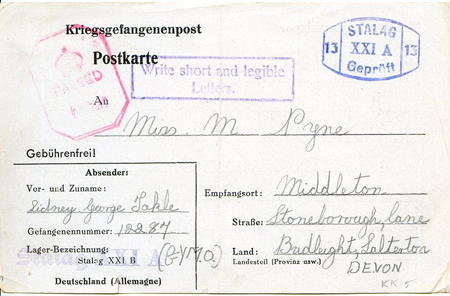 Kriegsgefangenenpost
Postkarte
An
Write short and legible
Letters.
STALAG
13 XXI A 13
Geprüft
Miss. M Pyne
Gebührenfrei!
Absender:
Vor- und Zuname:
Sidney George Takle
Gefangenennummer: 12287
Lager-Bezeichnung:
Stalag XXI B
Stalag XXI A
Deutschland (Allemagne)
Empfangsort: Middleton
Straße: Stoneborough, lane
Land: Budleight, Salterton
Landesteil (Provinz usw.)
DEVON
KK 5